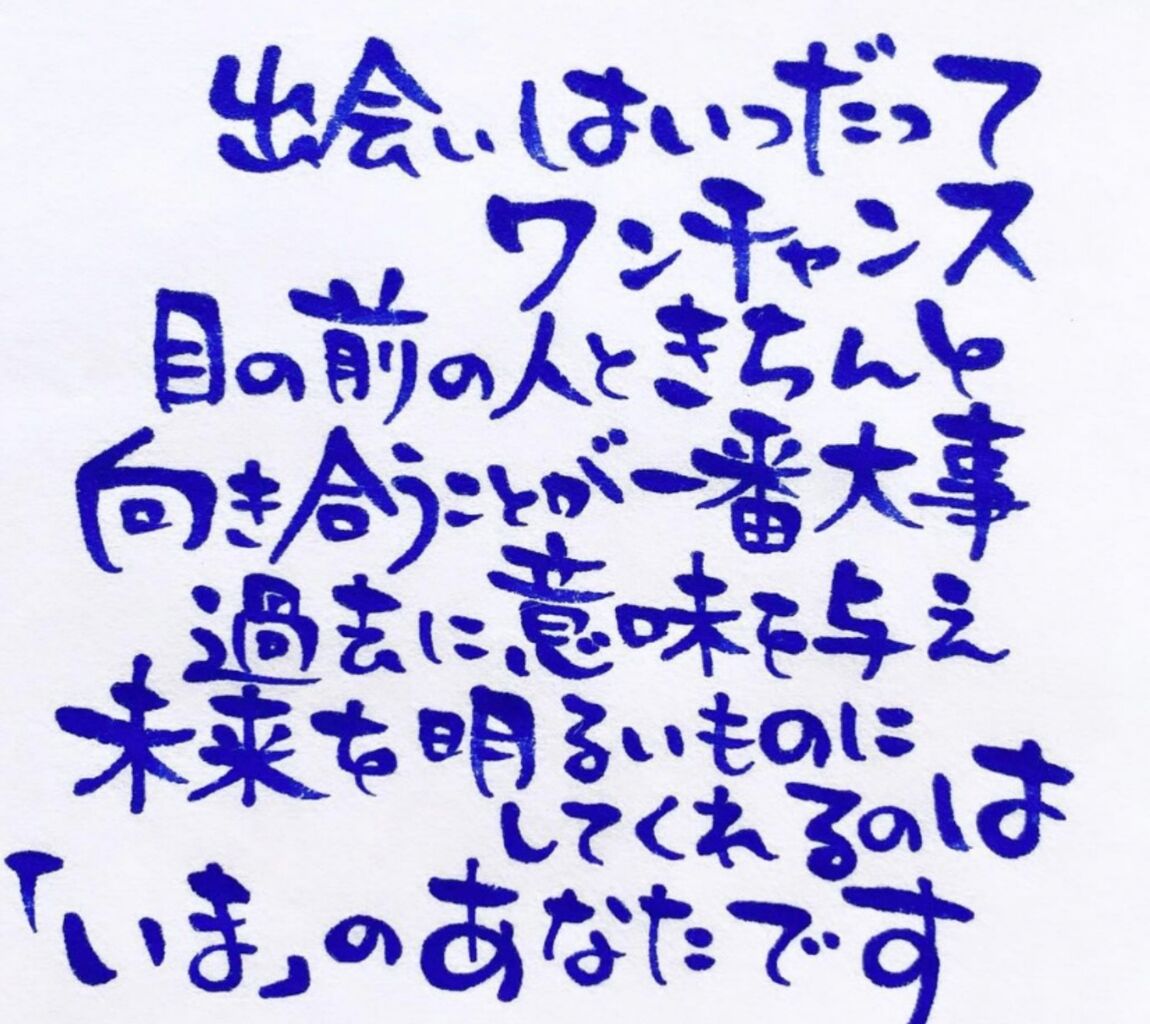 出会いはいつだって
ワンチャンス
目の前の人ときちんと
向き合うことが一番大事
過去に意味を与え
未来を明るいものに
してくれるのは
「いま」のあなたです